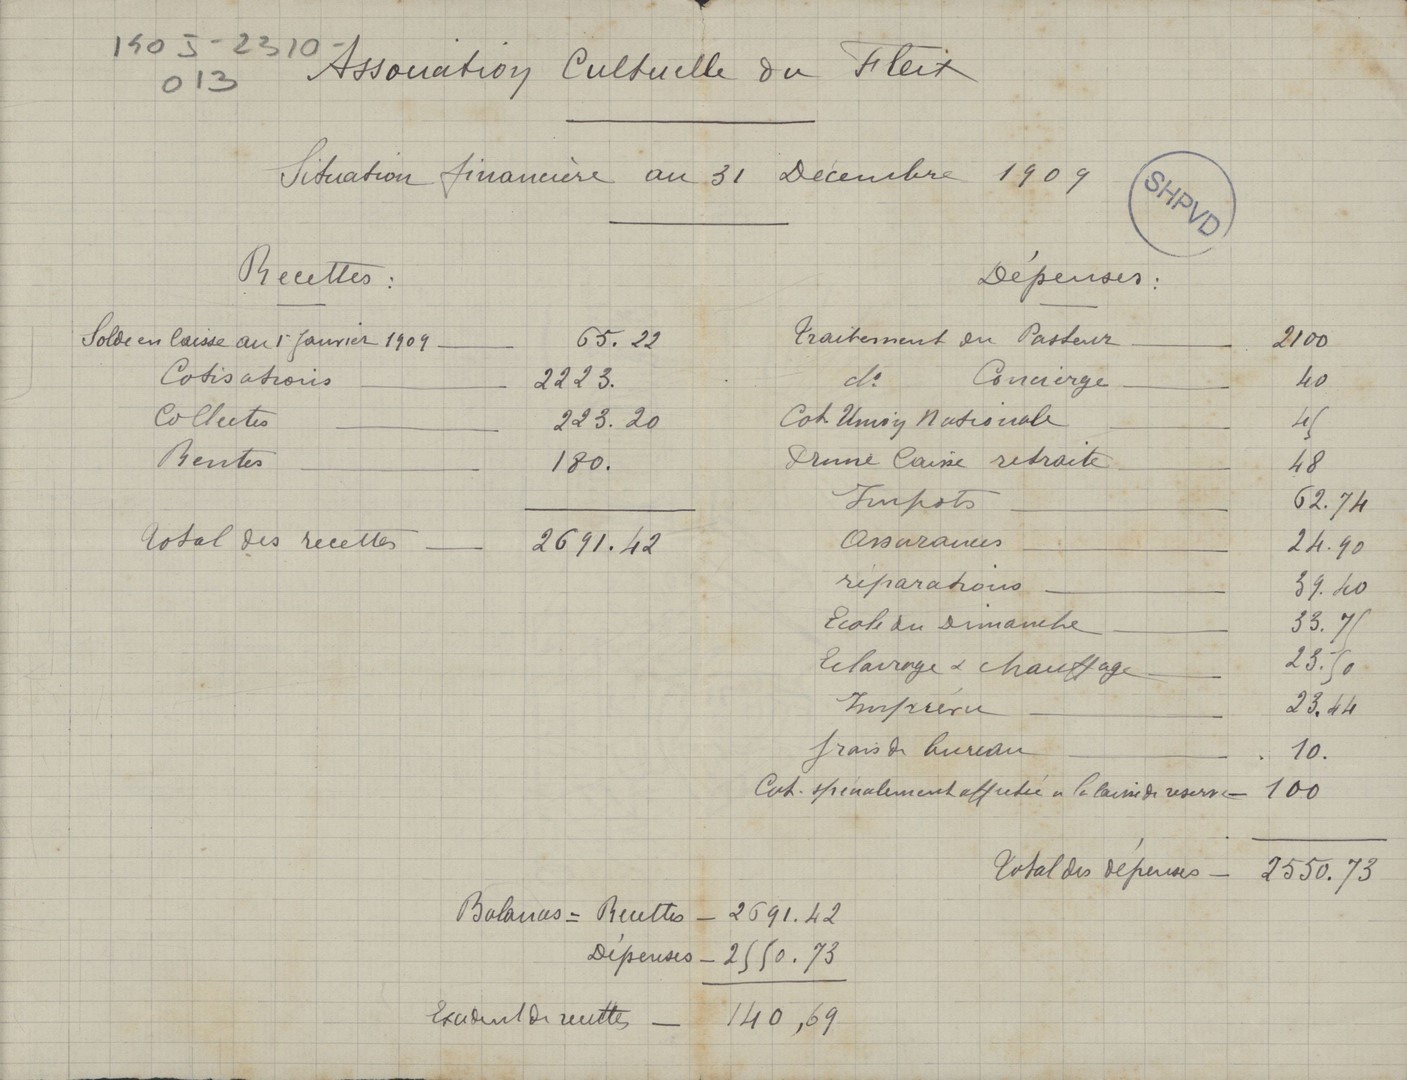 140 J - 2310 -
013
Association Cultuelle du Fleix
Situation financière au 31 Décembre 1909
SHPVD
Recettes :
Solde en Caisse au 1r Janvier 1909 — 65. 22
Cotisations — 2223.
Collectes — 223. 20
Rentes — 180.
Total des recettes — 2691. 42
Dépenses :
Traitement du Pasteur — 2100
do Concierge — 40
Cot. Union Nationale — 45
Prime Caisse retraite — 48
Impots — 62. 74
Assurances — 24. 90
réparations — 39. 40
Ecole du Dimanche — 33. 75
Eclairage & chauffage — 23. 50
Imprévu — 23. 44
frais de bureau — 10.
Cot. spécialement affectée a la caisse de reserve — 100
Total des dépenses — 2550. 73
Balances = Recettes — 2691. 42
Dépenses — 2550. 73
Excédent de recettes — 140,69